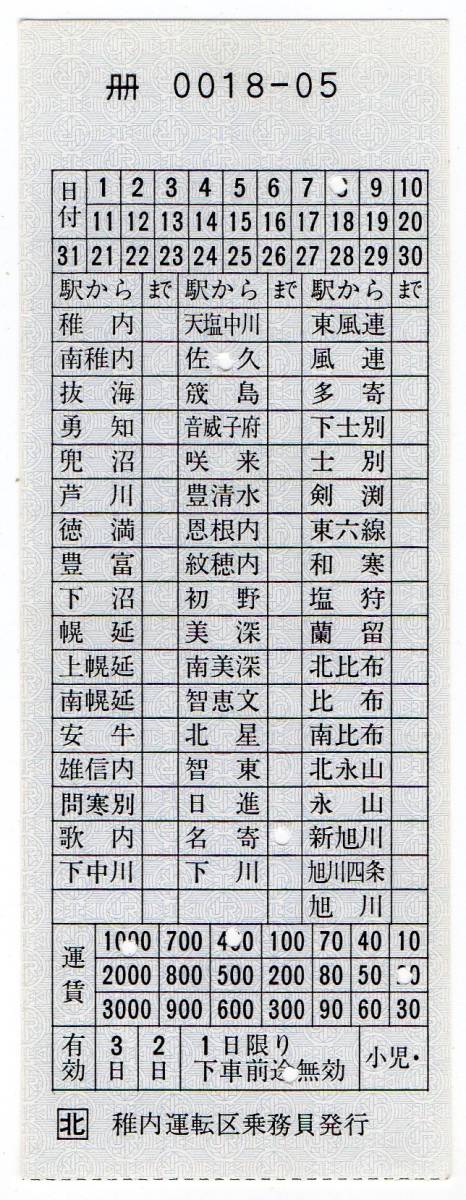 冊 0018-05
日付 1 2 3 4 5 6 7 8 9 10
11 12 13 14 15 16 17 18 19 20
31 21 22 23 24 25 26 27 28 29 30
駅から まで 駅から まで 駅から まで
稚内 天塩中川 東風連
南稚内 佐久 風連
抜海 筬島 多寄
勇知 音威子府 下士別
兜沼 咲来 士別
芦川 豊清水 剣渕
徳満 恩根内 東六線
豊富 紋穂内 和寒
下沼 初野 塩狩
幌延 美深 蘭留
上幌延 南美深 北比布
南幌延 智恵文 比布
安牛 北星 南比布
雄信内 智東 北永山
問寒別 日進 永山
歌内 名寄 新旭川
下中川 下川 旭川四条
旭川
運賃 1000 700 400 100 70 40 10
2000 800 500 200 80 50 20
3000 900 600 300 90 60 30
有効 3日 2日 1日限り 下車前途無効 小児・
北 稚内運転区乗務員発行